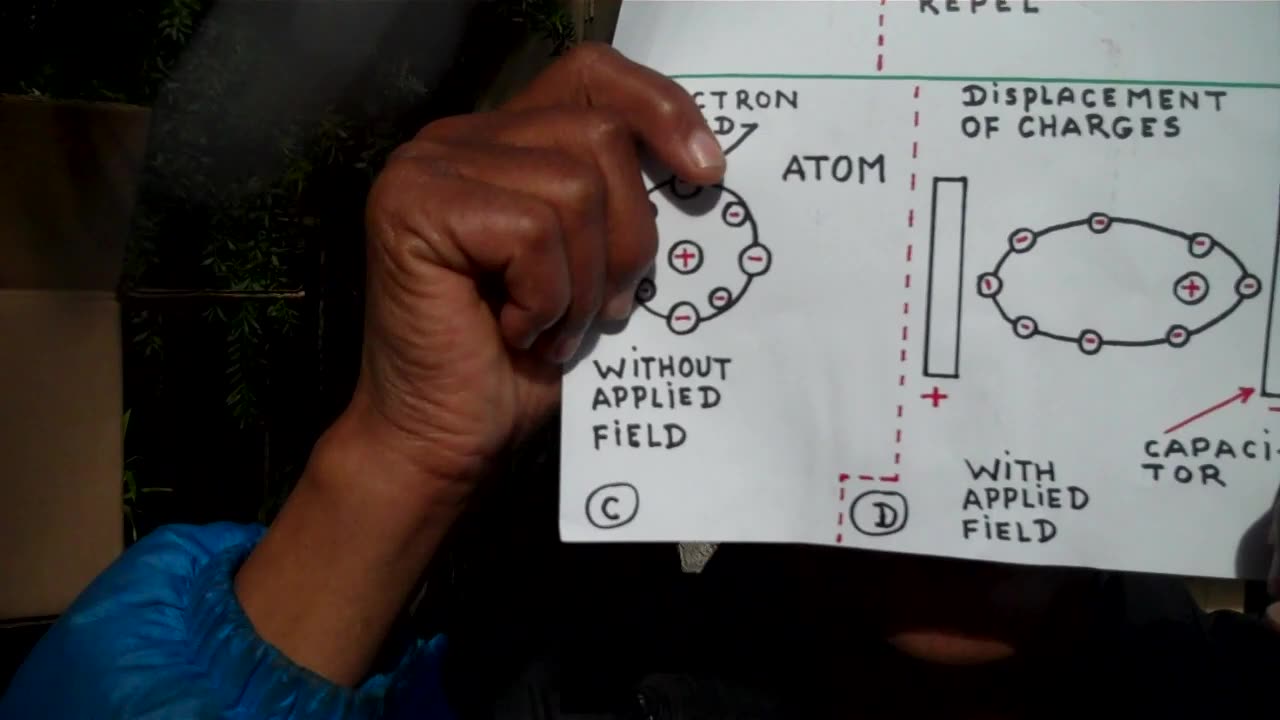 REPEL
CTRON
D
ATOM
+
WITHOUT
APPLiED
FiELD
C
DiSPLACEMENT
OF CHARGES
+
+
CAPACi-
TOR
WiTH
APPLiED
FiELD
D